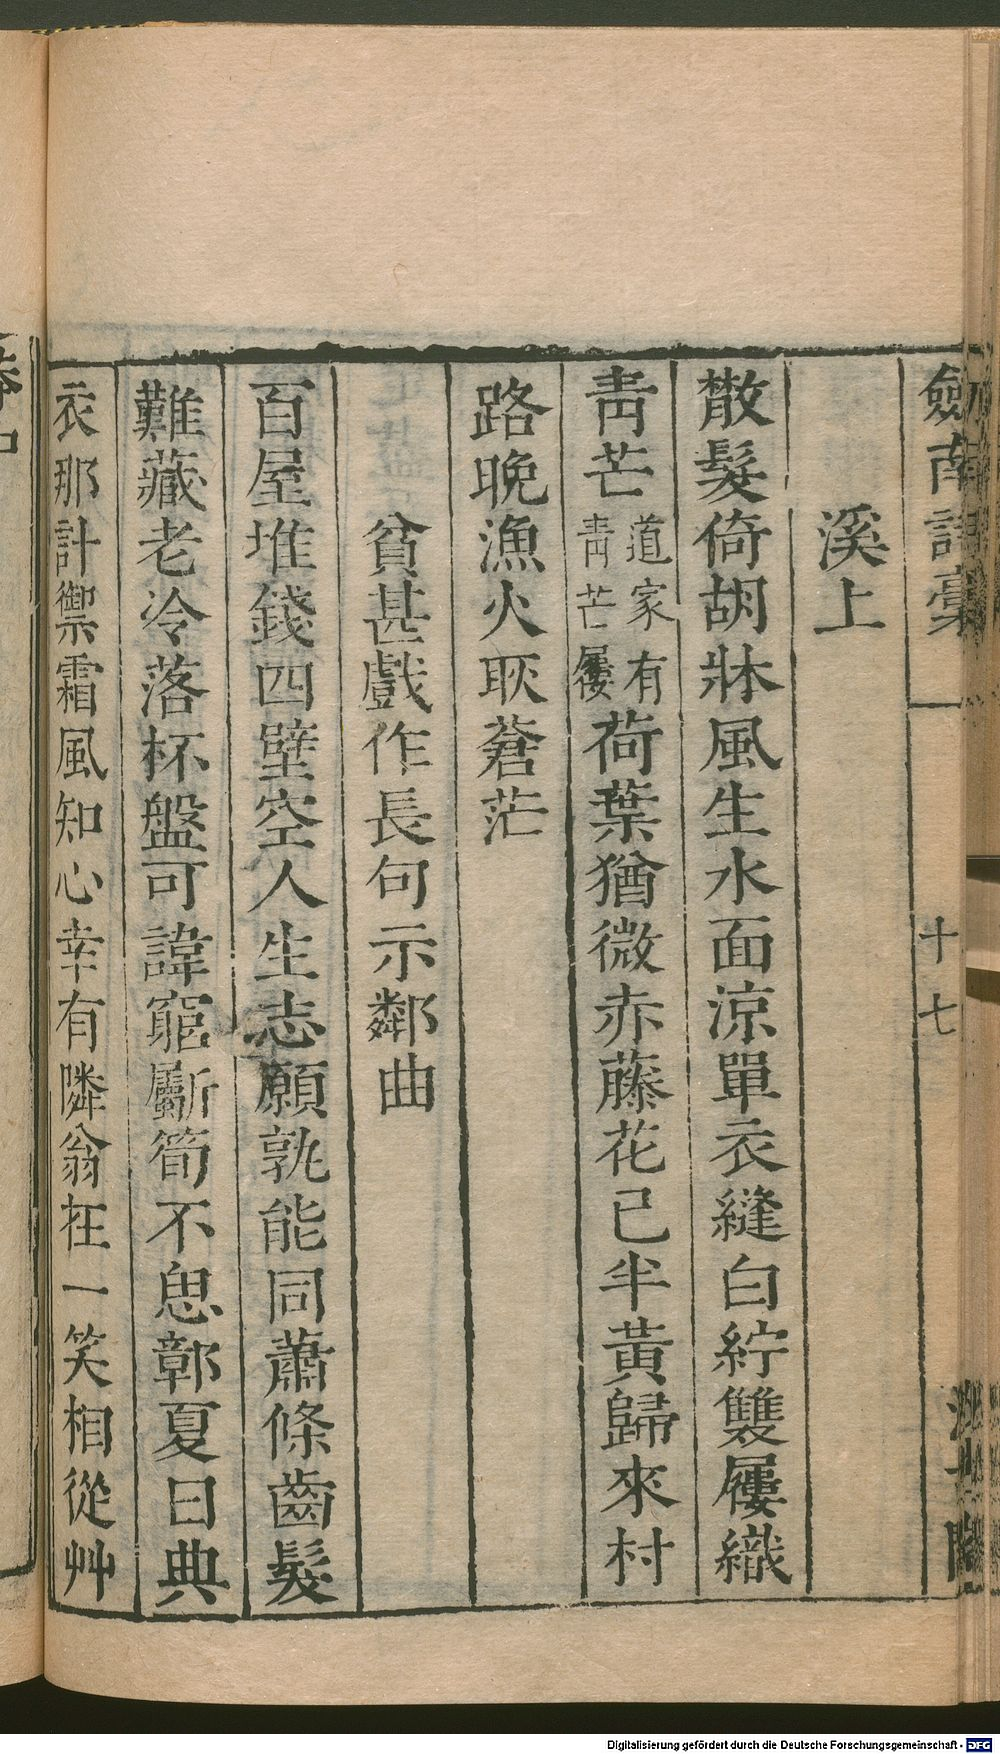 劒南詩稾
十七
溪上
散髮倚胡牀風生水面涼單衣縫白紵雙屨織
青芒道家有青芒屨荷葉猶微赤藤花已半黃歸來村
路晚漁火耿蒼茫
貧甚戲作長句示鄰曲
百屋堆錢四壁空人生志願孰能同蕭條齒髮
難藏老冷落杯盤可諱窮斸筍不思彰夏日典
衣那計禦霜風知心幸有隣翁在一笑相從艸
Digitalisierung gefördert durch die Deutsche Forschungsgemeinschaft - DFG